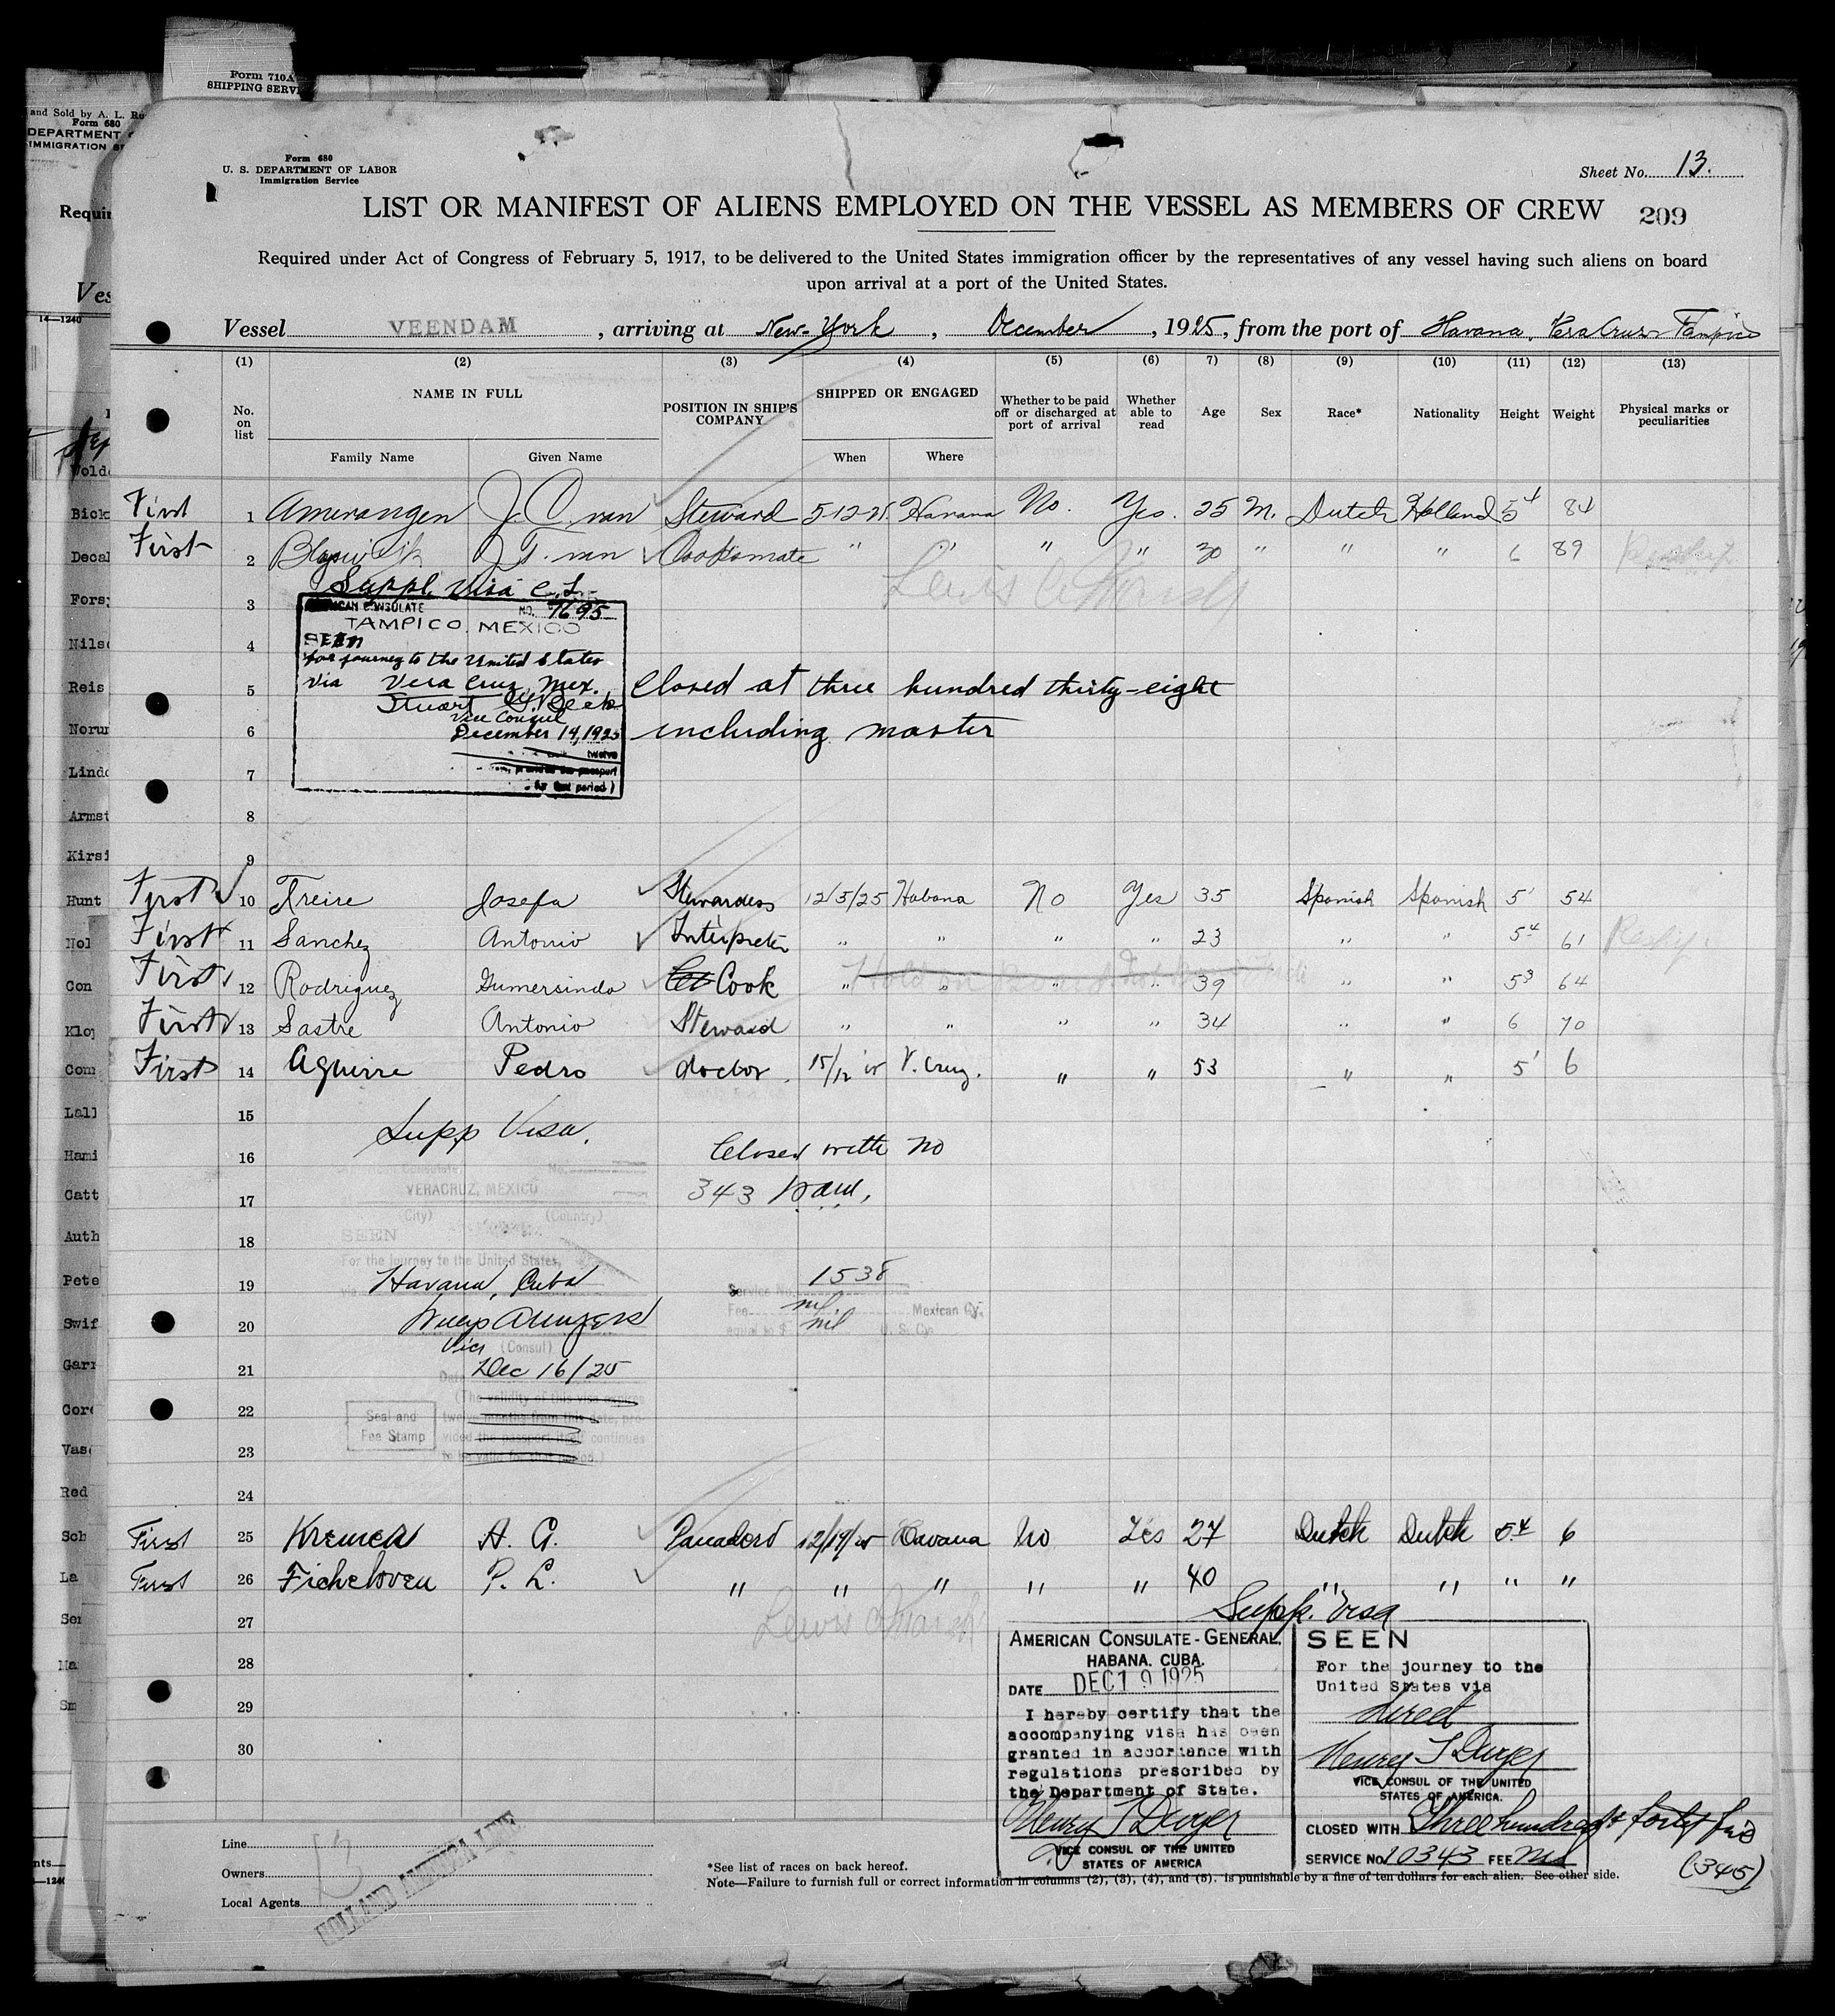 Form 710A
SHIPPING SERVI
and Sold by A. L. Ru
Form 680
DEPARTMENT
IMMIGRATION SE
Form 680
U. S. DEPARTMENT OF LABOR
Immigration Service
Sheet No. 13.
LIST OR MANIFEST OF ALIENS EMPLOYED ON THE VESSEL AS MEMBERS OF CREW 209
Required under Act of Congress of February 5, 1917, to be delivered to the United States immigration officer by the representatives of any vessel having such aliens on board
upon arrival at a port of the United States.
Vessel VEENDAM, arriving at New-York, December, 1925, from the port of Havana, Vera Cruz Tampico
(1) (2) (3) (4) (5) (6) 7) (8) (9) (10) (11) (12) (13)
No. on list
NAME IN FULL
Family Name Given Name
POSITION IN SHIP'S COMPANY
SHIPPED OR ENGAGED
When Where
Whether to be paid off or discharged at port of arrival
Whether able to read
Age Sex Race* Nationality Height Weight
Physical marks or peculiarities
First 1 Amerongen J. C. van Steward 5-12-25. Havana No. Yes. 25 M. Dutch Holland 5 4 84
First 2 J. T. van Cooksmate " " " " 30 " " " 6 89
Suppl. Visa
3
AMERICAN CONSULATE NO. 7695
TAMPICO, MEXICO
4
SEEN
for journey to the United States
via Vera Cruz, Mex.
5 Closed at three hundred thirty-eight
Vice Consul
December 14, 1925
6 including master
7
8
9
First 10 Freire Josefa Stewardess 12/5/25 Habana No Yes 35 Spanish Spanish 5' 54
First 11 Sanchez Antonio Interpreter " " " " 23 " " 5 4 61
First 12 Rodriguez Gumersindo Cook " " " " 39 " " 5 3 64
First 13 Sastre Antonio Steward " " " " 34 " " 6 70
First 14 Aguirre Pedro doctor 15/12 25 V. Cruz. " " 53 " " 5' 6
15
Supp Visa.
16 Closed with no
VERACRUZ, MEXICO
17 343
(City) (Country)
18 SEEN
For the journey to the United States,
19 via Havana, Cuba
Service No. 1538
Fee nil Mexican Cy.
20
equal to $ nil U. S. Cy.
Vice (Consul)
21 Date Dec 16/25
(The validity of this visa expires
22 twelve months from this date, pro-
vided the passport itself continues
23 to be valid for that period.)
Seal and
Fee Stamp
24
First 25 Kremer A. G. Panadero 12/19/25 Havana No Yes 27 Dutch Dutch 5.4 6
First 26 P. L. " " " " " 40 " " " "
Supp. Visa
27
28
29
30
AMERICAN CONSULATE-GENERAL.
HABANA. CUBA.
DATE DEC 19 1925
I hereby certify that the
accompanying visa has been
granted in accordance with
regulations prescribed by
the Department of State.
Henry T Dwyer
VICE CONSUL OF THE UNITED
STATES OF AMERICA
SEEN
For the journey to the
United States via
direct
Henry T Dwyer
VICE CONSUL OF THE UNITED
STATES OF AMERICA.
CLOSED WITH Three hundred & forty five
SERVICE NO. 10343 FEE Nil
(345)
Line
Owners
Local Agents
HOLLAND AMERICA LINE
*See list of races on back hereof.
Note—Failure to furnish full or correct information in columns (2), (3), (4), and (5). is punishable by a fine of ten dollars for each alien. See other side.